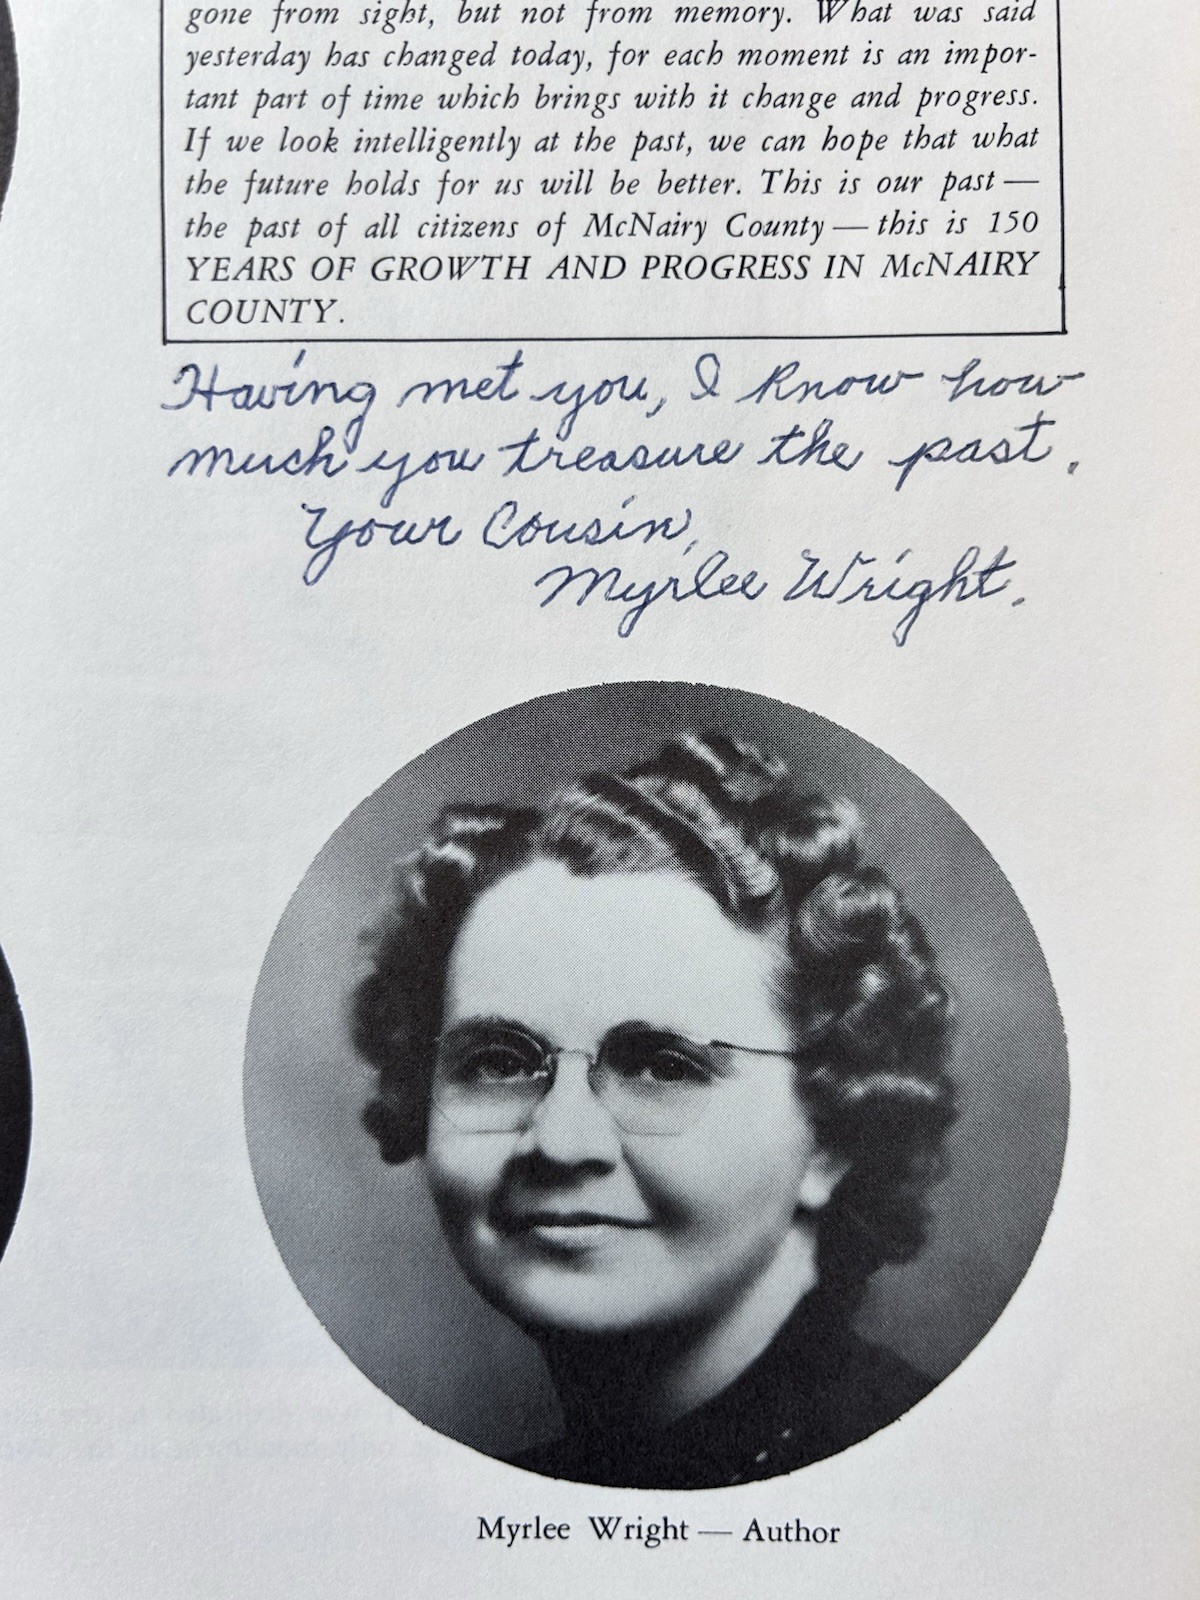 gone from sight, but not from memory. What was said
yesterday has changed today, for each moment is an impor-
tant part of time which brings with it change and progress.
If we look intelligently at the past, we can hope that what
the future holds for us will be better. This is our past —
the past of all citizens of McNairy County — this is 150
YEARS OF GROWTH AND PROGRESS IN McNAIRY
COUNTY.
Having met you, I know how
much you treasure the past.
Your Cousin,
Myrlee Wright.
Myrlee Wright — Author